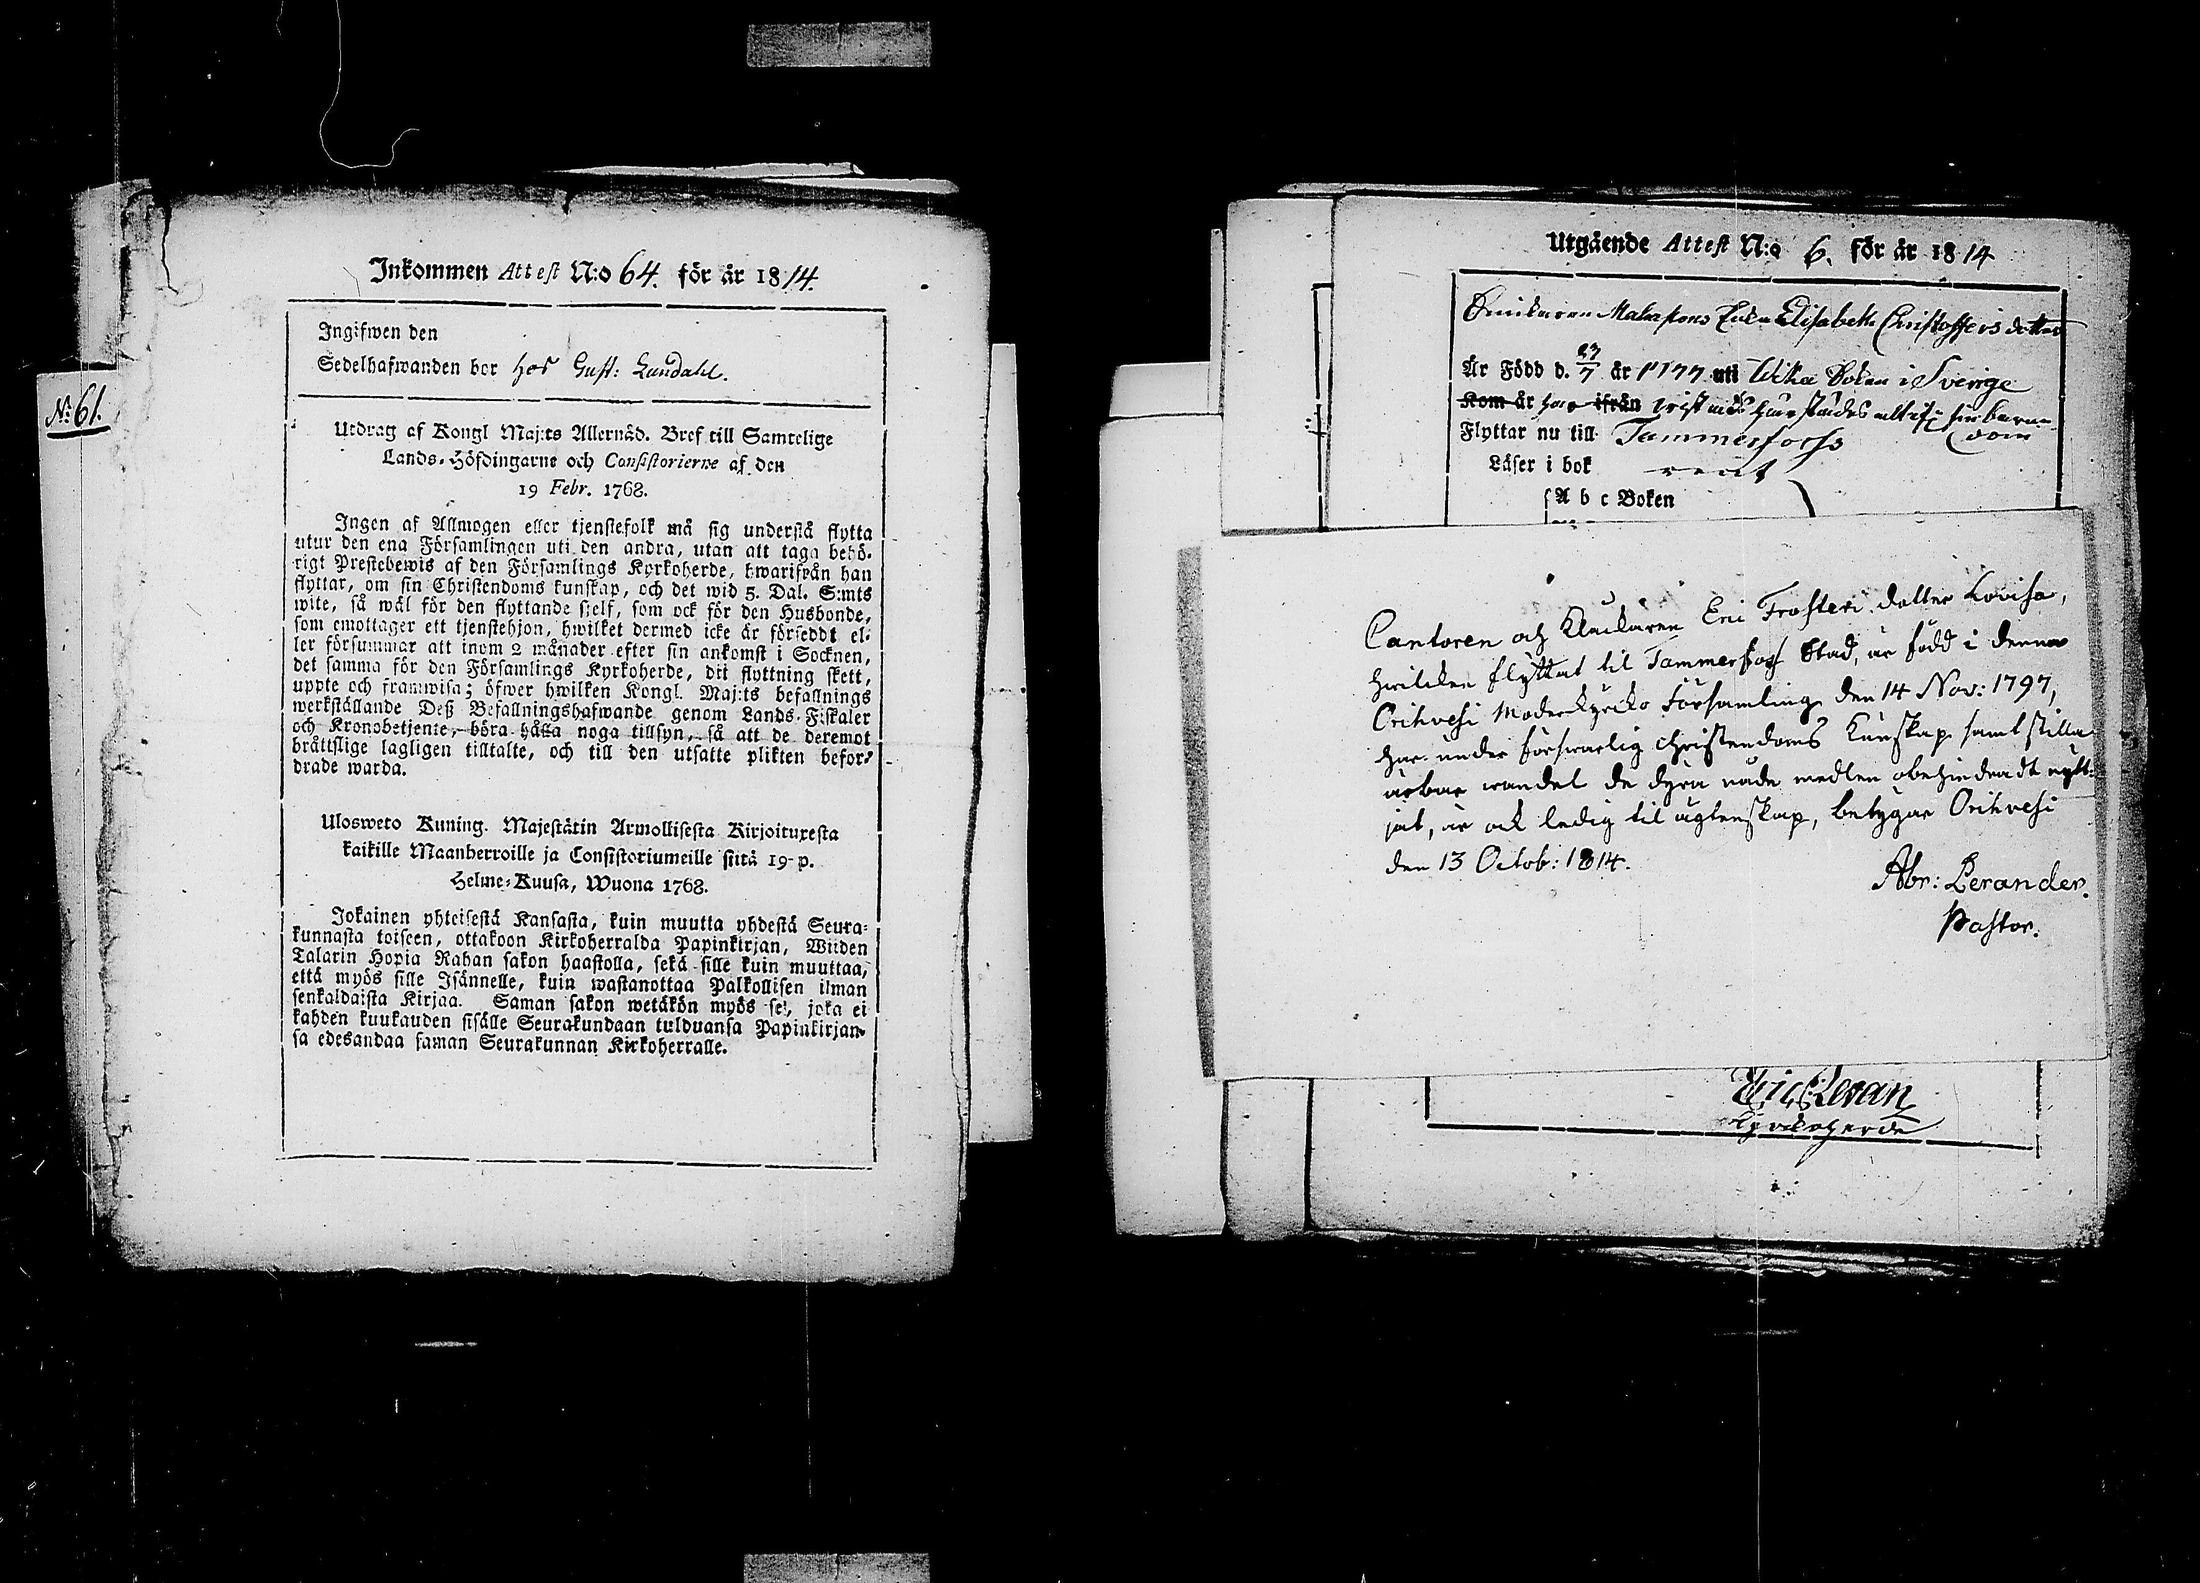 Inkommen Attest N:o 64. för år 1814.
Ingifwen den
Sedelhafwanden bor hos Gust: Lundahl.
N:61.
Utdrag af Kongl Maj:ts Allernåd. Bref till Samtelige
Lands-Höfdingarne och Consistorierne af den
19 Febr. 1768.
Ingen af Allmogen eller tjenstefolk må sig understå flytta
utur den ena Församlingen uti den andra, utan att taga behö-
rigt Prestebewis af den Församlings Kyrkoherde, hwarifrån han
flyttar, om sin Christendoms kunskap, och det wid 5. Dal. S:mts
wite, så wäl för den flyttande sjelf, som ock för den Husbonde,
som emottager ett tjenstehjon, hwilket dermed icke är förseddt el-
ler försummar att inom 2 månader efter sin ankomst i Socknen,
det samma för den Församlings Kyrkoherde, dit flyttning skett,
uppte och framwisa; öfwer hwilken Kongl. Maj:ts befallnings
werkställande Deß Befallningshafwande genom Lands-Fiskaler
och Kronobetjente, böra hålla noga tillsyn, så att de deremot
bråttslige lagligen tilltalte, och till den utsatte plikten befor-
drade warda.
Ulosweto Kuning. Majestätin Armollisesta Kirjoituxesta
kaikille Maanherroille ja Consistoriumeille siitä 19-p.
Helme-Kuusa, Wuona 1768.
Jokainen yhteisestä Kansasta, kuin muutta yhdestä Seura-
kunnasta toiseen, ottakoon Kirkoherralda Papinkirjan, Wiiden
Talarin Hopia Rahan sakon haastolla, sekä sille kuin muuttaa,
että myös sille Isännelle, kuin wastanottaa Palkollisen ilman
senkaldaista Kirjaa. Saman sakon wetäkön myös se, joka ei
kahden kuukauden sisälle Seurakundaan tulduansa Papinkirjan-
sa edesandaa saman Seurakunnan Kirkoherralle.
Utgående Attest N:o 6. för år 1814
Enka Elisabeth Christoffersdotter
Är Född d. 27/7 år 1777 uti Wika Soken i Sverige
Kom år har ifrån wistats härstädes alt ifrån sin barn-
dom
Flyttar nu till Tammerfors
Läser i bok rent
A b c Boken
Cantoren och Klockaren Eric Frosteri dotter Lovisa,
hwilcken flyttat til Tammerfors Stad, är född i denna
Orihvesi Moderkyrcko Församling den 14 Nov: 1797,
har under förswarlig christendoms Kunskap samt stilla
ärbar wandel de dyra nåde medlen obehindradt nytt-
jat, är ock ledig til ägtenskap, betygar Orihvesi
den 13 Octob: 1814.
Abr: Lerander.
Pastor.
Kyrckoherde